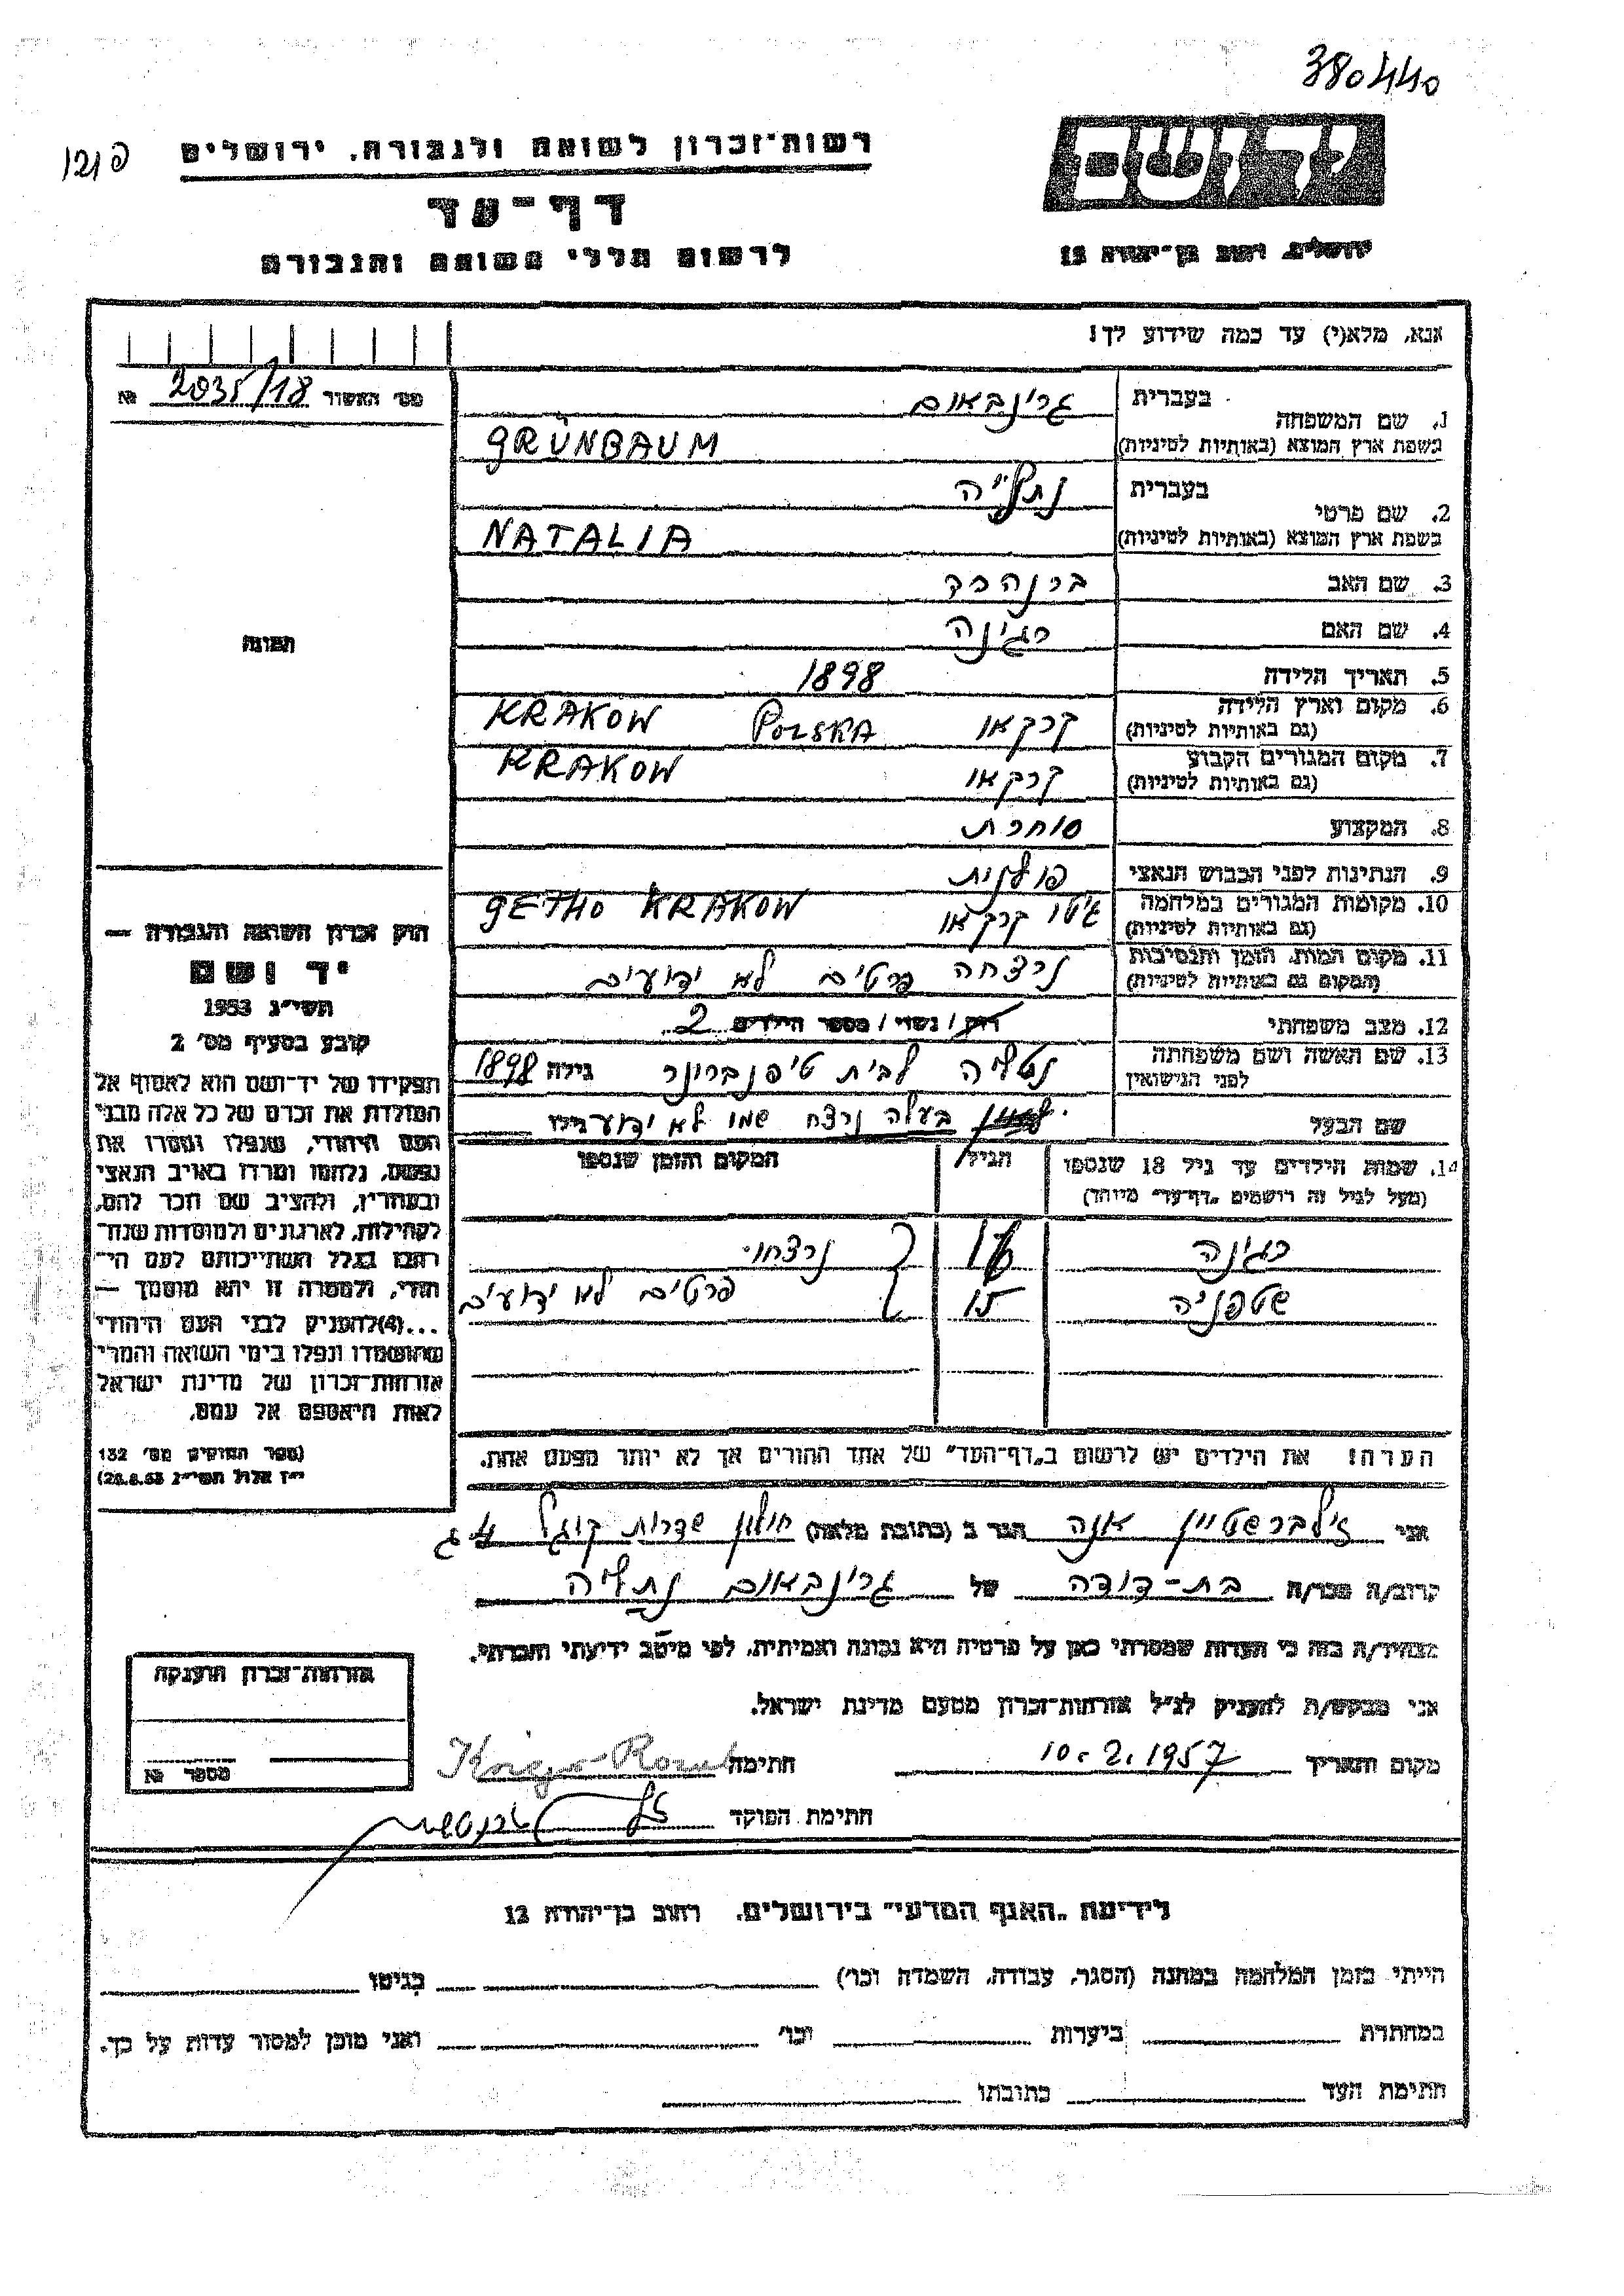 380440
רשות־זכרון לשואה ולגבורה, ירושלים
דף־עד
לרשום חללי השואה והגבורה
ירושלים, רחוב בן־יהודה 12
אנא, מלא(י) עד כמה שידוע לך!
מס׳ האשור № 2035/18
1. שם המשפחה בעברית גרינבאום
בשפת ארץ המוצא (באותיות לטיניות) GRÜNBAUM
2. שם פרטי בעברית נתליה
בשפת ארץ המוצא (באותיות לטיניות) NATALIA
3. שם האב ברנהרד
4. שם האם רגינה
5. תאריך הלידה 1898
6. מקום וארץ הלידה (גם באותיות לטיניות) קרקאו POLSKA KRAKOW
7. מקום המגורים הקבוע (גם באותיות לטיניות) קרקאו KRAKOW
8. המקצוע סוחרת
9. הנתינות לפני הכבוש הנאצי פולנית
10. מקומות המגורים במלחמה (גם באותיות לטיניות) גיטו קרקאו GETHO KRAKOW
11. מקום המות, הזמן והנסיבות (המקום גם באותיות לטיניות) נרצחה פרטים לא ידועים
12. מצב משפחתי רווק / נשוי / מספר הילדים 2
13. שם האשה ושם משפחתה לפני הנישואין נטליה לבית טיפנברונר גילה 1898
שם הבעל בעלה נרצח שמו לא ידוע גילו
14. שמות הילדים עד גיל 18 שנספו הגיל המקום והזמן שנספו
(מעל לגיל זה רושמים „דף־עד״ מיוחד)
רגינה נרצחו
שטפניה 15 פרטים לא ידועים
הערה! את הילדים יש לרשום ב„דף־העד״ של אחד ההורים אך לא יותר מפעם אחת.
תמונה
חוק זכרון השואה והגבורה —
יד ושם
תשי״ג 1953
קובע בסעיף מס׳ 2
תפקידו של יד־ושם הוא לאסוף אל
המולדת את זכרם של כל אלה מבני
העם היהודי, שנפלו ומסרו את
נפשם, נלחמו ומרדו באויב הנאצי
ובעוזריו, ולהציב שם וזכר להם,
לקהילות, לארגונים ולמוסדות שנח־
רבו בגלל השתייכותם לעם הי־
הודי, ולמטרה זו יהא מוסמך —
...(4) להעניק לבני העם היהודי
שהושמדו ונפלו בימי השואה והמרי
אזרחות־זכרון של מדינת ישראל
לאות היאספם אל עמם.
(ספר החוקים מס׳ 132
י״ז אלול תשי״ג 28.8.53)
אני זילברשטיין אנה הגר ב (כתובת מלאה) חולון שדרות קוגל 4 ג
קרוב/ה מכר/ה בת-דודה של גרינבאום נתליה
מצהיר/ה בזה כי העדות שמסרתי כאן על פרטיה היא נכונה ואמיתית, לפי מיטב ידיעתי והכרתי.
אני מבקש/ת להעניק לנ״ל אזרחות־זכרון מטעם מדינת ישראל.
מקום ותאריך 10.2.1957 חתימה
חתימת הפוקד
אזרחות־זכרון הוענקה
מספר №
לידיעת „האגף המדעי״ בירושלים, רחוב בן־יהודה 12
הייתי בזמן המלחמה במחנה (הסגר, עבודה, השמדה וכו׳) בגיטו
במחתרת ביערות וכו׳ ואני מוכן למסור עדות על כך.
חתימת העד כתובתו